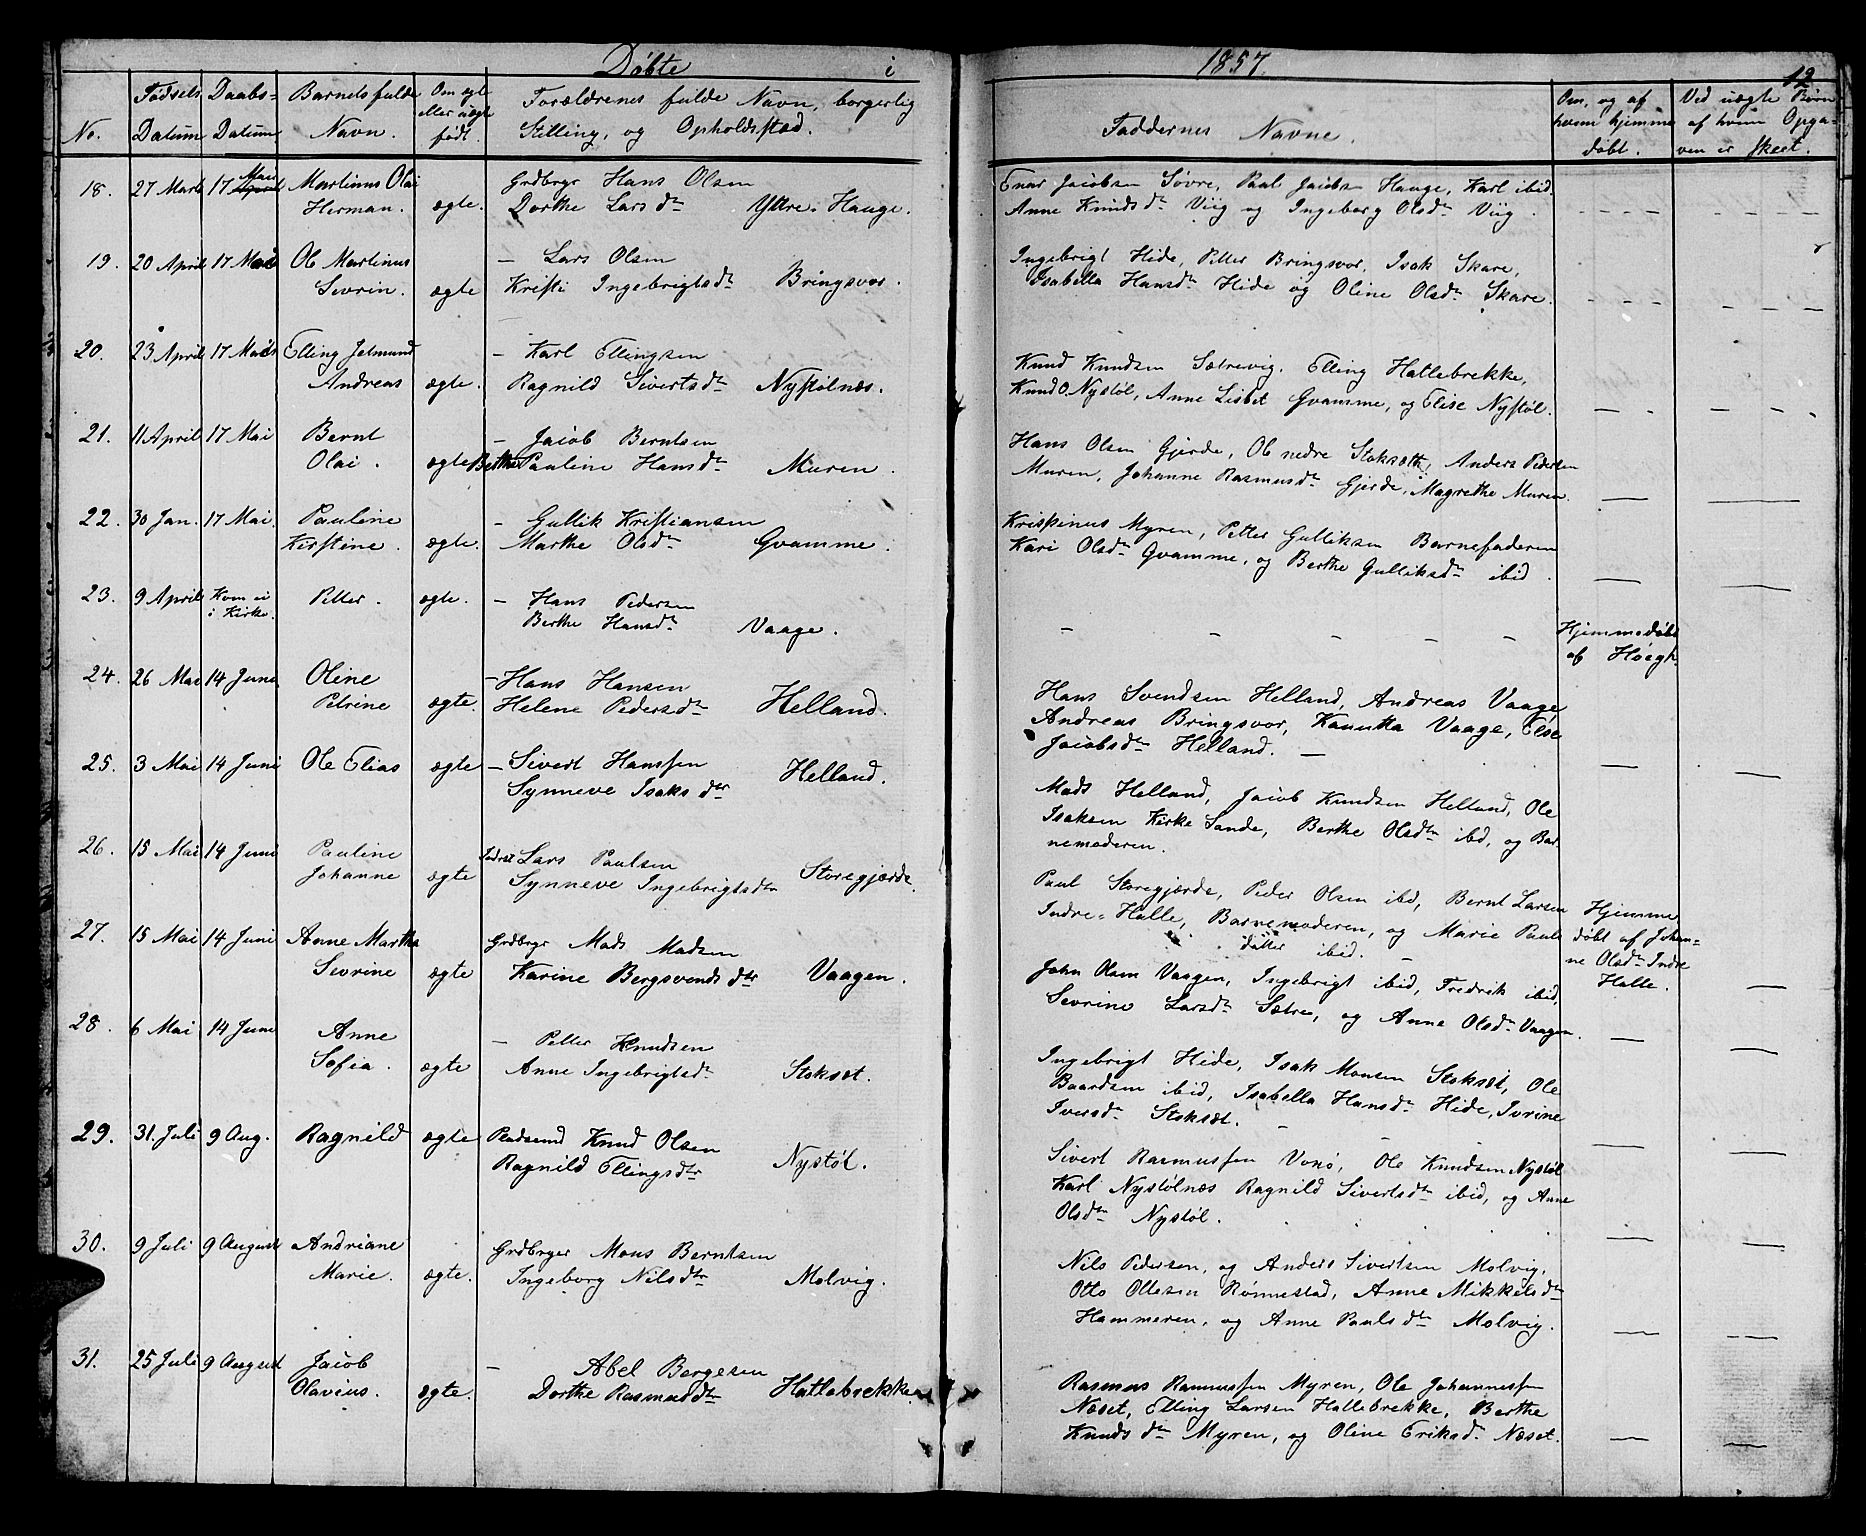 Döbte i 1857.
12
No.
Födsels Datum
Daabs-Datum
Barnets fulde Navn.
Om ægte eller uægte født.
Forældrenes fulde Navn, borgerlig Stilling, og Opholdssted.
Faddernes Navne.
Om, og af hvem hjemme döbt.
Ved uægte Børn af hvem Opgaven er skeet.
18. 27 Marts 17 Mai Martinus Olai Herman. ægte. Grdbrgr Hans Olsen
Dorthe Larsdtr Yttre-Hauge.
Enar Jacobsen Søvre, Paul Jacobs Hauge, Karl ibid.
Anne Knudsdtr Viig og Ingeborg Olsdtr Viig.
19. 20 April 17 Mai Ole Martinus Sevrin. ægte – Lars Olsen
Kristi Ingebrigtsdtr Bringsvor.
Ingebrigt Hide, Petter Bringsvor, Isak Skare,
Isabella Hansdtr Hide og Oline Olsdtr Skare.
20. 23 April 17 Mai Elling Jetmund Andreas ægte. – Karl Ellingsen
Ragnild Sivertsdtr Nystølnæs.
Knud Knudsen Sætrevig, Elling Hatlebrekke,
Knud O. Nystøl, Anne Lisbet Gvamme, og Elise Nystøl.
21. 11 April 17 Mai Bernt Olai. ægte – Jacob Berntsen
Berthe Pauline Hansdtr Muren.
Hans Olsen Gjerde, Ole nedre Stoksæth, Anders Pedersen
Muren, Johanne Rasmusdtr Gjerde, Magrethe Muren.
22. 30 Jan. 17 Mai. Pauline Kirstine. ægte. – Gullik Kristiansen
Marthe Olsdtr Gvamme.
Krispinus Myren, Petter Gulliksen Barnefaderen
Kari Olsdtr Gvamme, og Berthe Gulliksdtr ibid.
23. 9 April Kom ei i Kirke. Petter. ægte. – Hans Pedersen
Berthe Hansdtr Vaage.
Hjemmedöbt af Höegh.
24. 26 Mai 14 Juni Oline Petrine ægte. – Hans Hansen
Helene Pedersdtr Helland.
Hans Svendsen Helland, Andreas Vaage
Andreas Bringsvor, Kanutta Vaage, Else
Jacobsdtr Helland. –
25. 3 Mai 14 Juni Ole Elias ægte – Sivert Hanssen
Synneve Isaksdtr Helland.
Mads Helland, Jacob Knudsen Helland, Ole
Isaksen Kirke Sande, Berthe Olsdtr ibid, og Bar-
nemoderen.
26. 15 Mai 14 Juni Pauline Johanne ægte Lars Paulsen
Synneve Ingebrigtsdtr Storegjærde.
Paul Storegjærde, Peder Olsen ibid, Bernt Larsen
Indre-Halle, Barnemoderen, og Marie Pauls
datter ibid. –
Hjemme döbt af Johan-ne Olsdtr Indre Halle.
27. 15 Mai 14 Juni Anne Marthe Sevrine ægte Grdbrgr Mads Madsen
Karine Bergsvendsdtr Vaagen.
John Olsen Vaagen, Ingebrigt ibid, Fredrik ibid,
Sevrine Larsdtr Sætre, og Anne Olsdtr Vaagen.
28. 6 Mai 14 Juni Anne Sofia. ægte – Petter Knudsen
Anne Ingebrigtsdtr Stoksæt.
Ingebrigt Hide, Isak Monsen Stoksæt, Ole
Baardsen ibid, Isabella Hansdtr Hide, Ivrine
Iversdtr Stoksæt. –
29. 31. Juli 9 Aug. Ragnild ægte Pladsmd Knud Olsen
Ragnild Ellingsdtr Nystøl.
Sivert Rasmussen Vonö, Ole Knudsen Nystøl
Karl Nystølnæs Ragnild Sivertsdtr ibid, og Anne
Olsdtr Nystøl.
30. 9 Juli 9 August Andriane Marie. ægte. Grdbrger Mons Berntsen
Ingeborg Nilsdtr Molvig.
Nils Pedersen, og Anders Sivertsen Molvig,
Otto Ottesen Rönnestad, Anne Mikkelsdtr
Hammeren, og Anne Paulsdtr Molvig.
31. 25 Juli 9 August Jacob Olavius. ægte. – Abel Børgesen
Dorthe Rasmusdtr Hatlebrekke.
Rasmus Rasmussen Myren, Ole Johannessen
Næset, Elling Larsen Hatlebrekke, Berthe
Knudsdtr Myren, og Oline Eriksdtr Næset.